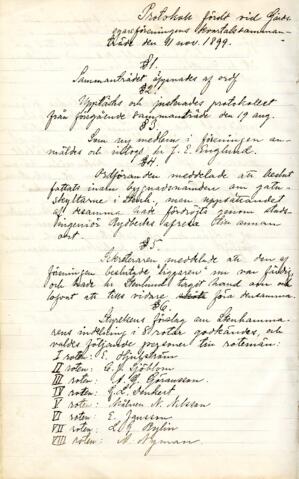 Protokoll fördt vid Gårds-
egareföreningens kvartalssamman-
träde den 11 nov. 1899.
§ 1.
Sammanträdet öppnades af ordf.
§ 2.
Upplästs och justerades protokollet
från föregående sammanträde den 19 aug.
§ 3.
Som ny medlem i föreningen an-
mäldes och invaldes J. E. Ringlund.
§ 4.
Ordföranden meddelade att beslut
fattats inom byggnadsnämnden om gatu-
skyltarne i Stenh., men uppsättandet
af desamma hade fördröjts genom stads-
ingeniör Rydbecks afresa till annan
ort.
§ 5.
Sekreteraren meddelade att den af
föreningen beslutade "liggaren" nu var färdig
och hade hr Stenlund tagit hand om
lofvat att tills vidare föra densamma.
§ 6.
Styrelsens förslag om Stenhamma-
rens indelning i 8 rotar godkändes, och
valdes följande personer till rotemän:
I roten: E. Hjulström
II roten: C. J. Sjöblom
III roten: A. G. Göransson
IV roten: G. L. Lenhert
V roten: Målaren N. Nilsson
VI roten: E. Jansson
VII roten: L. G. Bylin
VIII roten: A. Nyman.